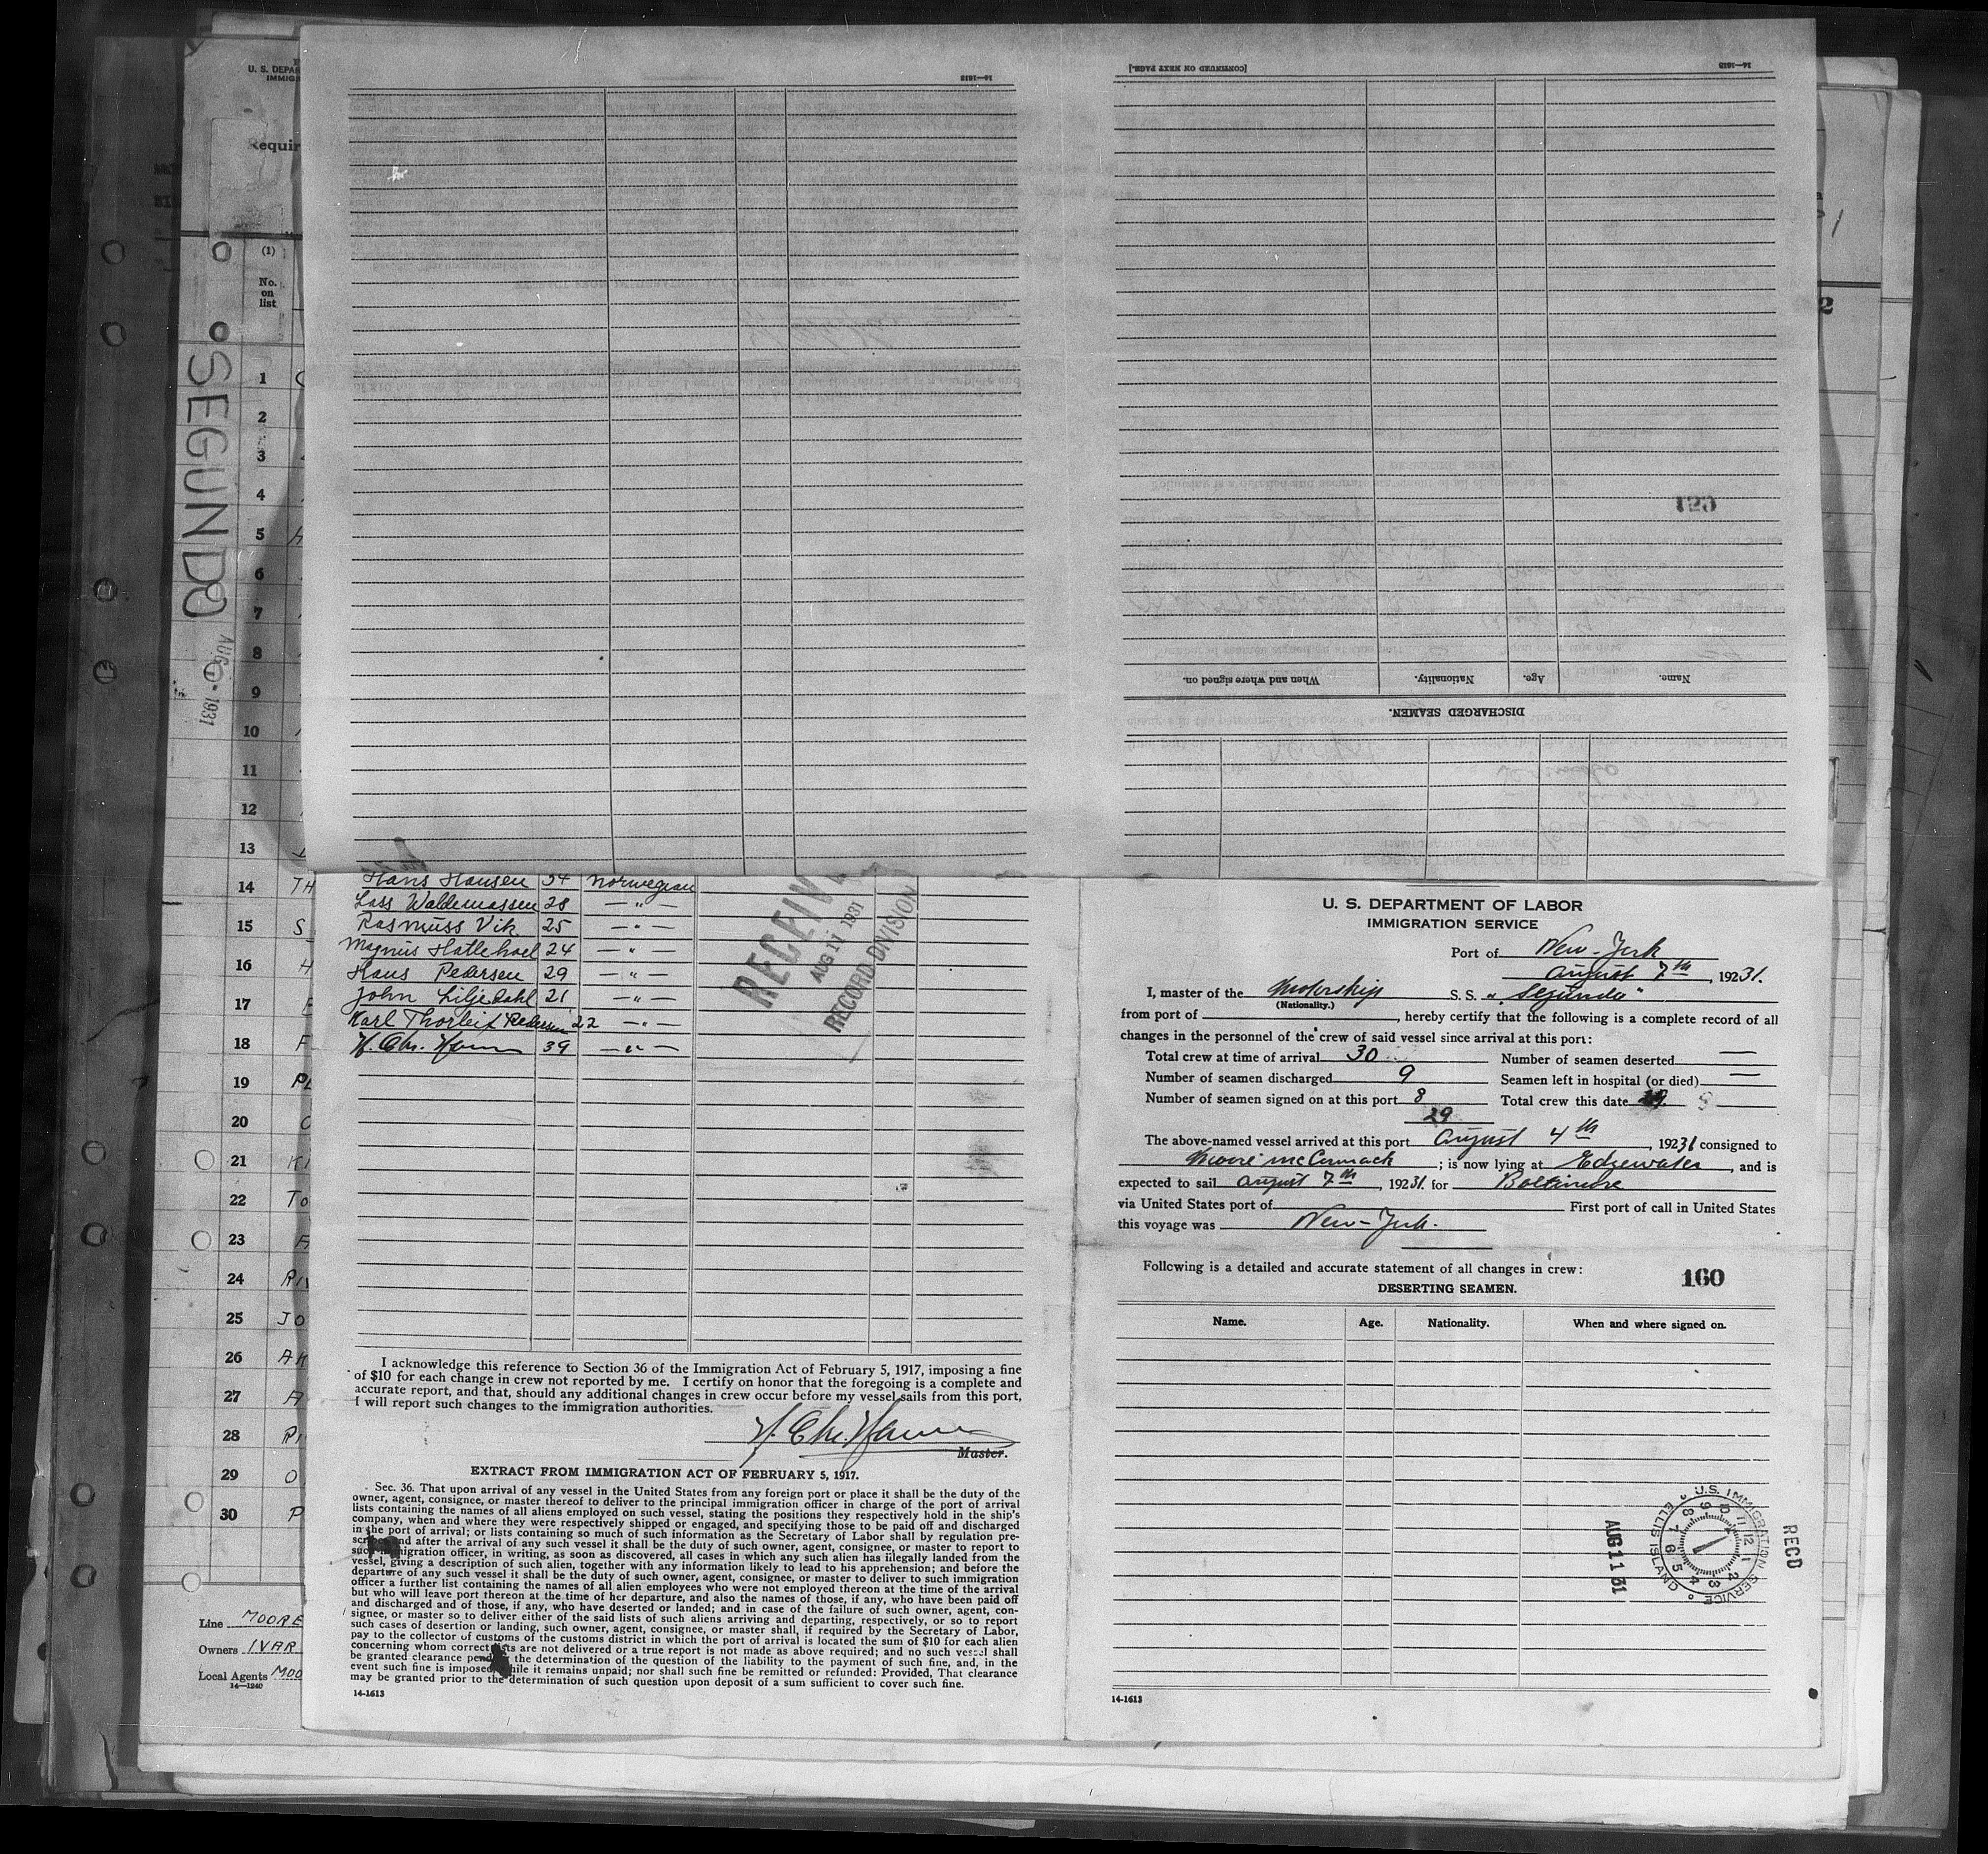 U. S. DEPAR
IMMIG
Requir
(1)
No.
on
list
SEGUNDO
AUG 11 1931
1
2
3
4
5 H
6
7
8
9
10
11
12
13
14 TH
15 S
16 H
17
18 F
19 PL
20
21 KI
22 TO
23
24 RI
25 JO
26 AK
27 A
28 RI
29 O
30 P
Line MOORE
Owners IVAR
Local Agents MOO
14—1240
2
14—1613
[CONTINUED ON NEXT PAGE.]
14—1613
When and where signed on.
Nationality.
Age.
Name.
DISCHARGED SEAMEN.
Hans Hansen 34 norwegian
Lass Waldemassen 28 — " —
Rasmuss Vik 25 — " —
Magnus Hatlehoel 24 — " —
Hans Pedersen 29 — " —
John Liljedahl 21 — " —
Karl Thorleif Pedersen 22 — " —
H. Chr. 39 — " —
RECEIVED
AUG 11 1931
RECORD DIVISION
I acknowledge this reference to Section 36 of the Immigration Act of February 5, 1917, imposing a fine
of $10 for each change in crew not reported by me. I certify on honor that the foregoing is a complete and
accurate report, and that, should any additional changes in crew occur before my vessel sails from this port,
I will report such changes to the immigration authorities.
H. Chr.
Master.
EXTRACT FROM IMMIGRATION ACT OF FEBRUARY 5, 1917.
Sec. 36. That upon arrival of any vessel in the United States from any foreign port or place it shall be the duty of the
owner, agent, consignee, or master thereof to deliver to the principal immigration officer in charge of the port of arrival
lists containing the names of all aliens employed on such vessel, stating the positions they respectively hold in the ship's
company, when and where they were respectively shipped or engaged, and specifying those to be paid off and discharged
in the port of arrival; or lists containing so much of such information as the Secretary of Labor shall by regulation pre-
scribe; and after the arrival of any such vessel it shall be the duty of such owner, agent, consignee, or master to report to
such immigration officer, in writing, as soon as discovered, all cases in which any such alien has illegally landed from the
vessel, giving a description of such alien, together with any information likely to lead to his apprehension; and before the
departure of any such vessel it shall be the duty of such owner, agent, consignee, or master to deliver to such immigration
officer a further list containing the names of all alien employees who were not employed thereon at the time of the arrival
but who will leave port thereon at the time of her departure, and also the names of those, if any, who have been paid off
and discharged and of those, if any, who have deserted or landed; and in case of the failure of such owner, agent, con-
signee, or master so to deliver either of the said lists of such aliens arriving and departing, respectively, or so to report
such cases of desertion or landing, such owner, agent, consignee, or master shall, if required by the Secretary of Labor,
pay to the collector of customs of the customs district in which the port of arrival is located the sum of $10 for each alien
concerning whom correct lists are not delivered or a true report is not made as above required; and no such vessel shall
be granted clearance pending the determination of the question of the liability to the payment of such fine, and, in the
event such fine is imposed, while it remains unpaid; nor shall such fine be remitted or refunded: Provided, That clearance
may be granted prior to the determination of such question upon deposit of a sum sufficient to cover such fine.
14-1613
U. S. DEPARTMENT OF LABOR
IMMIGRATION SERVICE
Port of New-York
August 7th, 1931.
I, master of the Motorship S. S. "Segundo"
(Nationality.)
from port of , hereby certify that the following is a complete record of all
changes in the personnel of the crew of said vessel since arrival at this port:
Total crew at time of arrival 30 Number of seamen deserted —
Number of seamen discharged 9 Seamen left in hospital (or died) —
Number of seamen signed on at this port 8 Total crew this date 29.
29
The above-named vessel arrived at this port August 4th, 1931 consigned to
Moore McCormack ; is now lying at Edgewater, and is
expected to sail August 7th, 1931. for Baltimore
via United States port of First port of call in United States
this voyage was New-York.
Following is a detailed and accurate statement of all changes in crew:
160
DESERTING SEAMEN.
Name. Age. Nationality. When and where signed on.
RECD
U.S. IMMIGRATION SERVICE
ELLIS ISLAND
12 1 2 3 4 5 6 7 8 9 10 11
AUG 11 31
14-1613